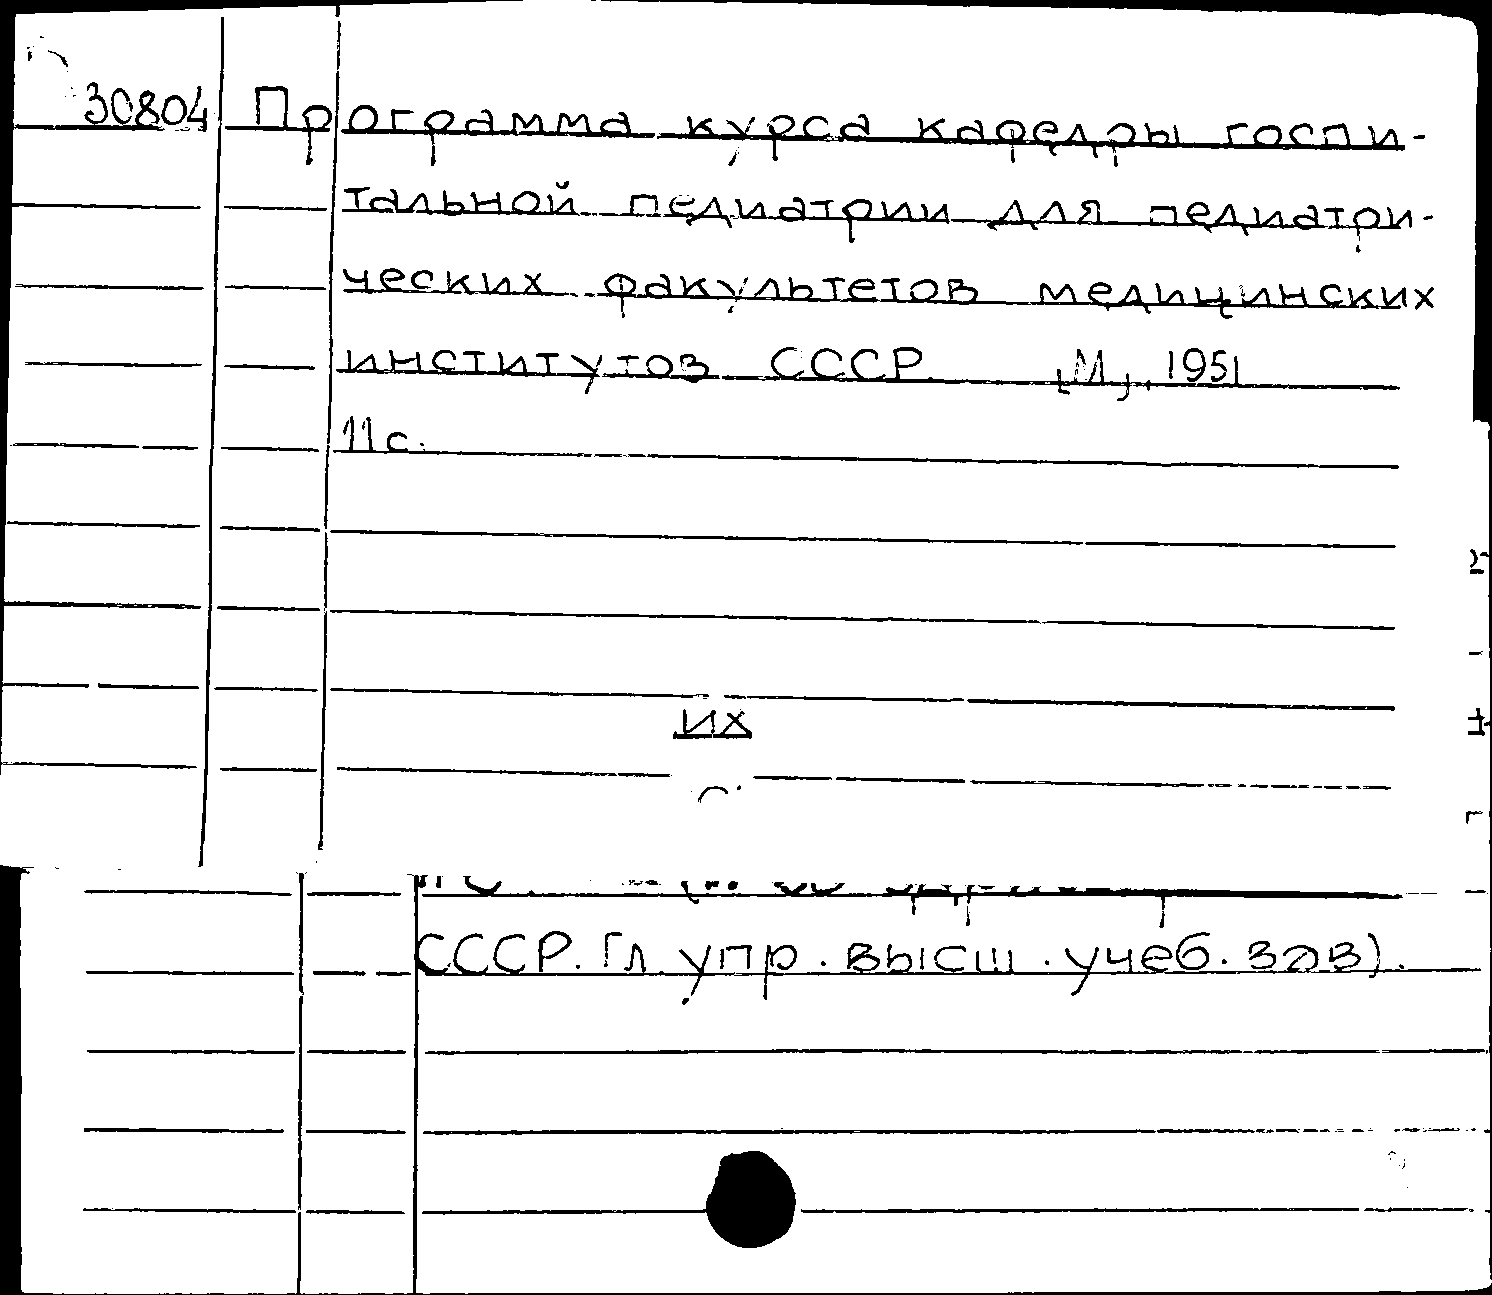 30804 Программа курса кафедры госпи-
тальной педиатрии для педиатри-
ческих факультетов медицинских
институтов СССР [М], 1951
11с.
их
СССР. Гл. упр. высш. учеб. зав).